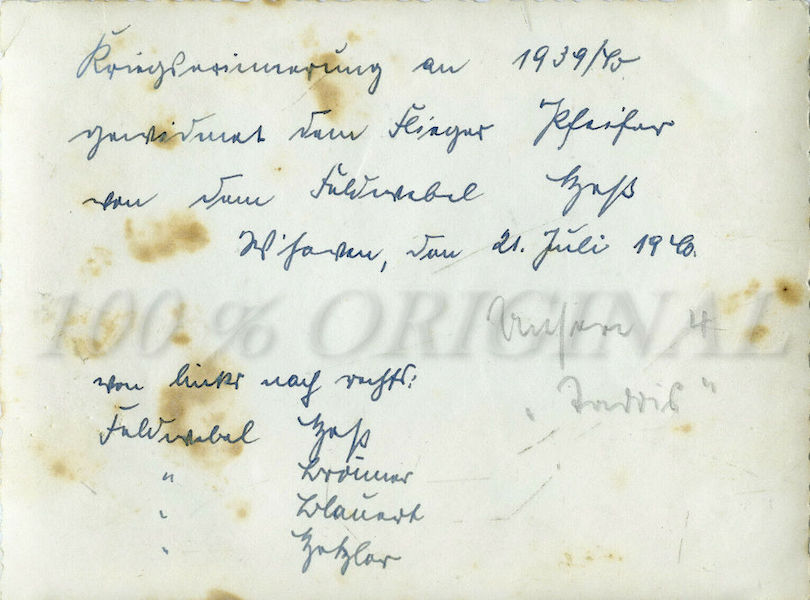 Kriegserinnerung an 1939/40
gewidmet dem Flieger Pfeifer
von dem Feldwebel Heß
W'haven, den 21. Juli 1940.
100 % ORIGINAL
Unsere 4
"Spieße"
von links nach rechts:
Feldwebel Heß
" Brönner
" Blauert
" Hetzler